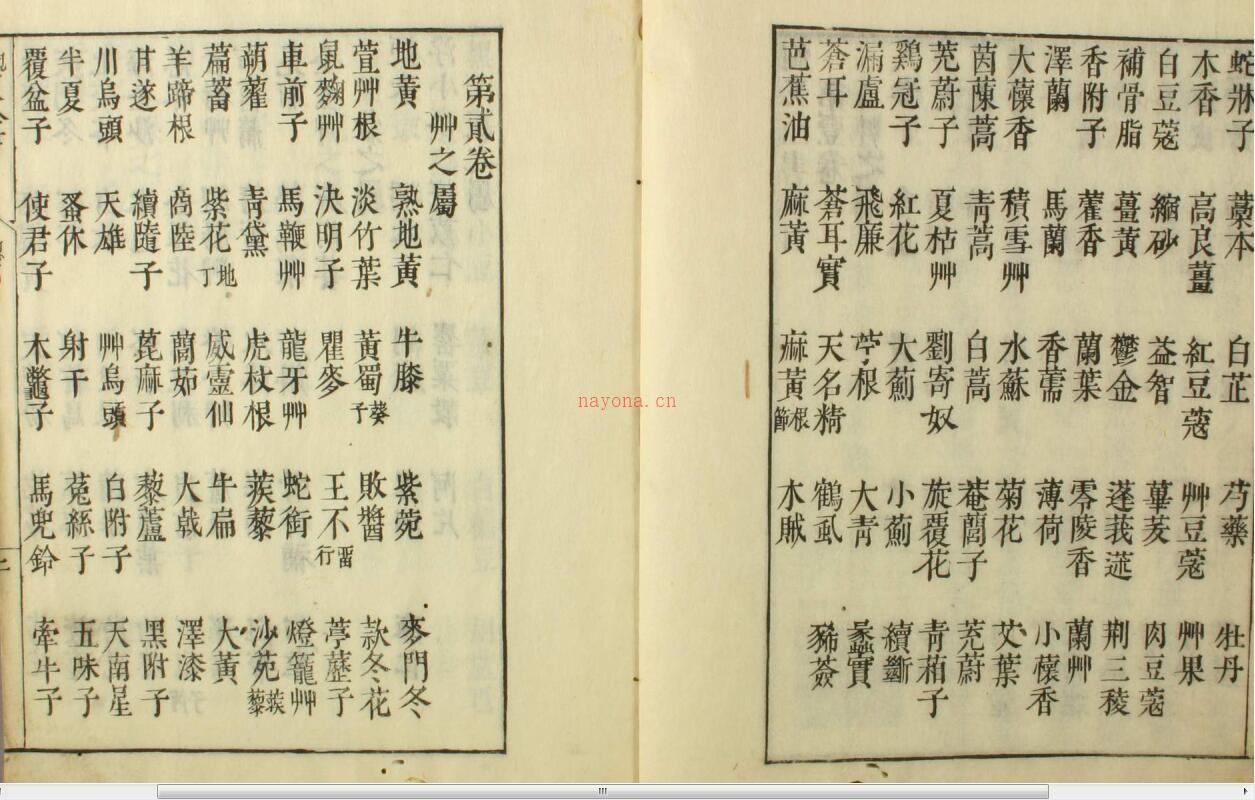 蛇牀子 藁本 白芷 芍藥 牡丹
木香 高良薑 紅豆蔻 艸豆蔻 艸果
白豆蔻 縮砂 益智 蓽茇 肉豆蔻
補骨脂 薑黃 鬱金 蓬莪蒁 荆三稜
香附子 藿香 蘭葉 零陵香 蘭艸
澤蘭 馬蘭 香薷 薄荷 小懷香
大懷香 積雪艸 水蘇 菊花 艾葉
茵蔯蒿 青蒿 白蒿 菴䕡子 茺蔚
茺蔚子 夏枯艸 劉寄奴 旋覆花 青葙子
鷄冠子 紅花 大薊 小薊 續斷
漏盧 飛廉 苧根 大青 蠡實
蒼耳 蒼耳實 天名精 鶴虱 豨薟
芭蕉油 麻黃 麻黃根節 木賊
第貳卷
艸之屬
地黃 熟地黃 牛膝 紫菀 麥門冬
萱艸根 淡竹葉 黃蜀葵子 敗醬 款冬花
鼠麴艸 決明子 瞿麥 王不留行 葶藶子
車前子 馬鞭艸 龍牙艸 蛇銜 燈籠艸
蒴藋 青黛 虎杖根 蒺藜 沙苑蒺藜
萹蓄 紫花地丁 威靈仙 牛扁 大黃
羊蹄根 商陸 藘茹 大戟 澤漆
甘遂 續隨子 萞麻子 藜蘆 黑附子
川烏頭 天雄 艸烏頭 白附子 天南星
半夏 蚤休 射干 菟絲子 五味子
覆盆子 使君子 木鼈子 馬兜鈴 牽牛子
nayona.cn